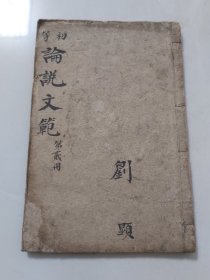 初等
論說文範
第貳冊
劉顯